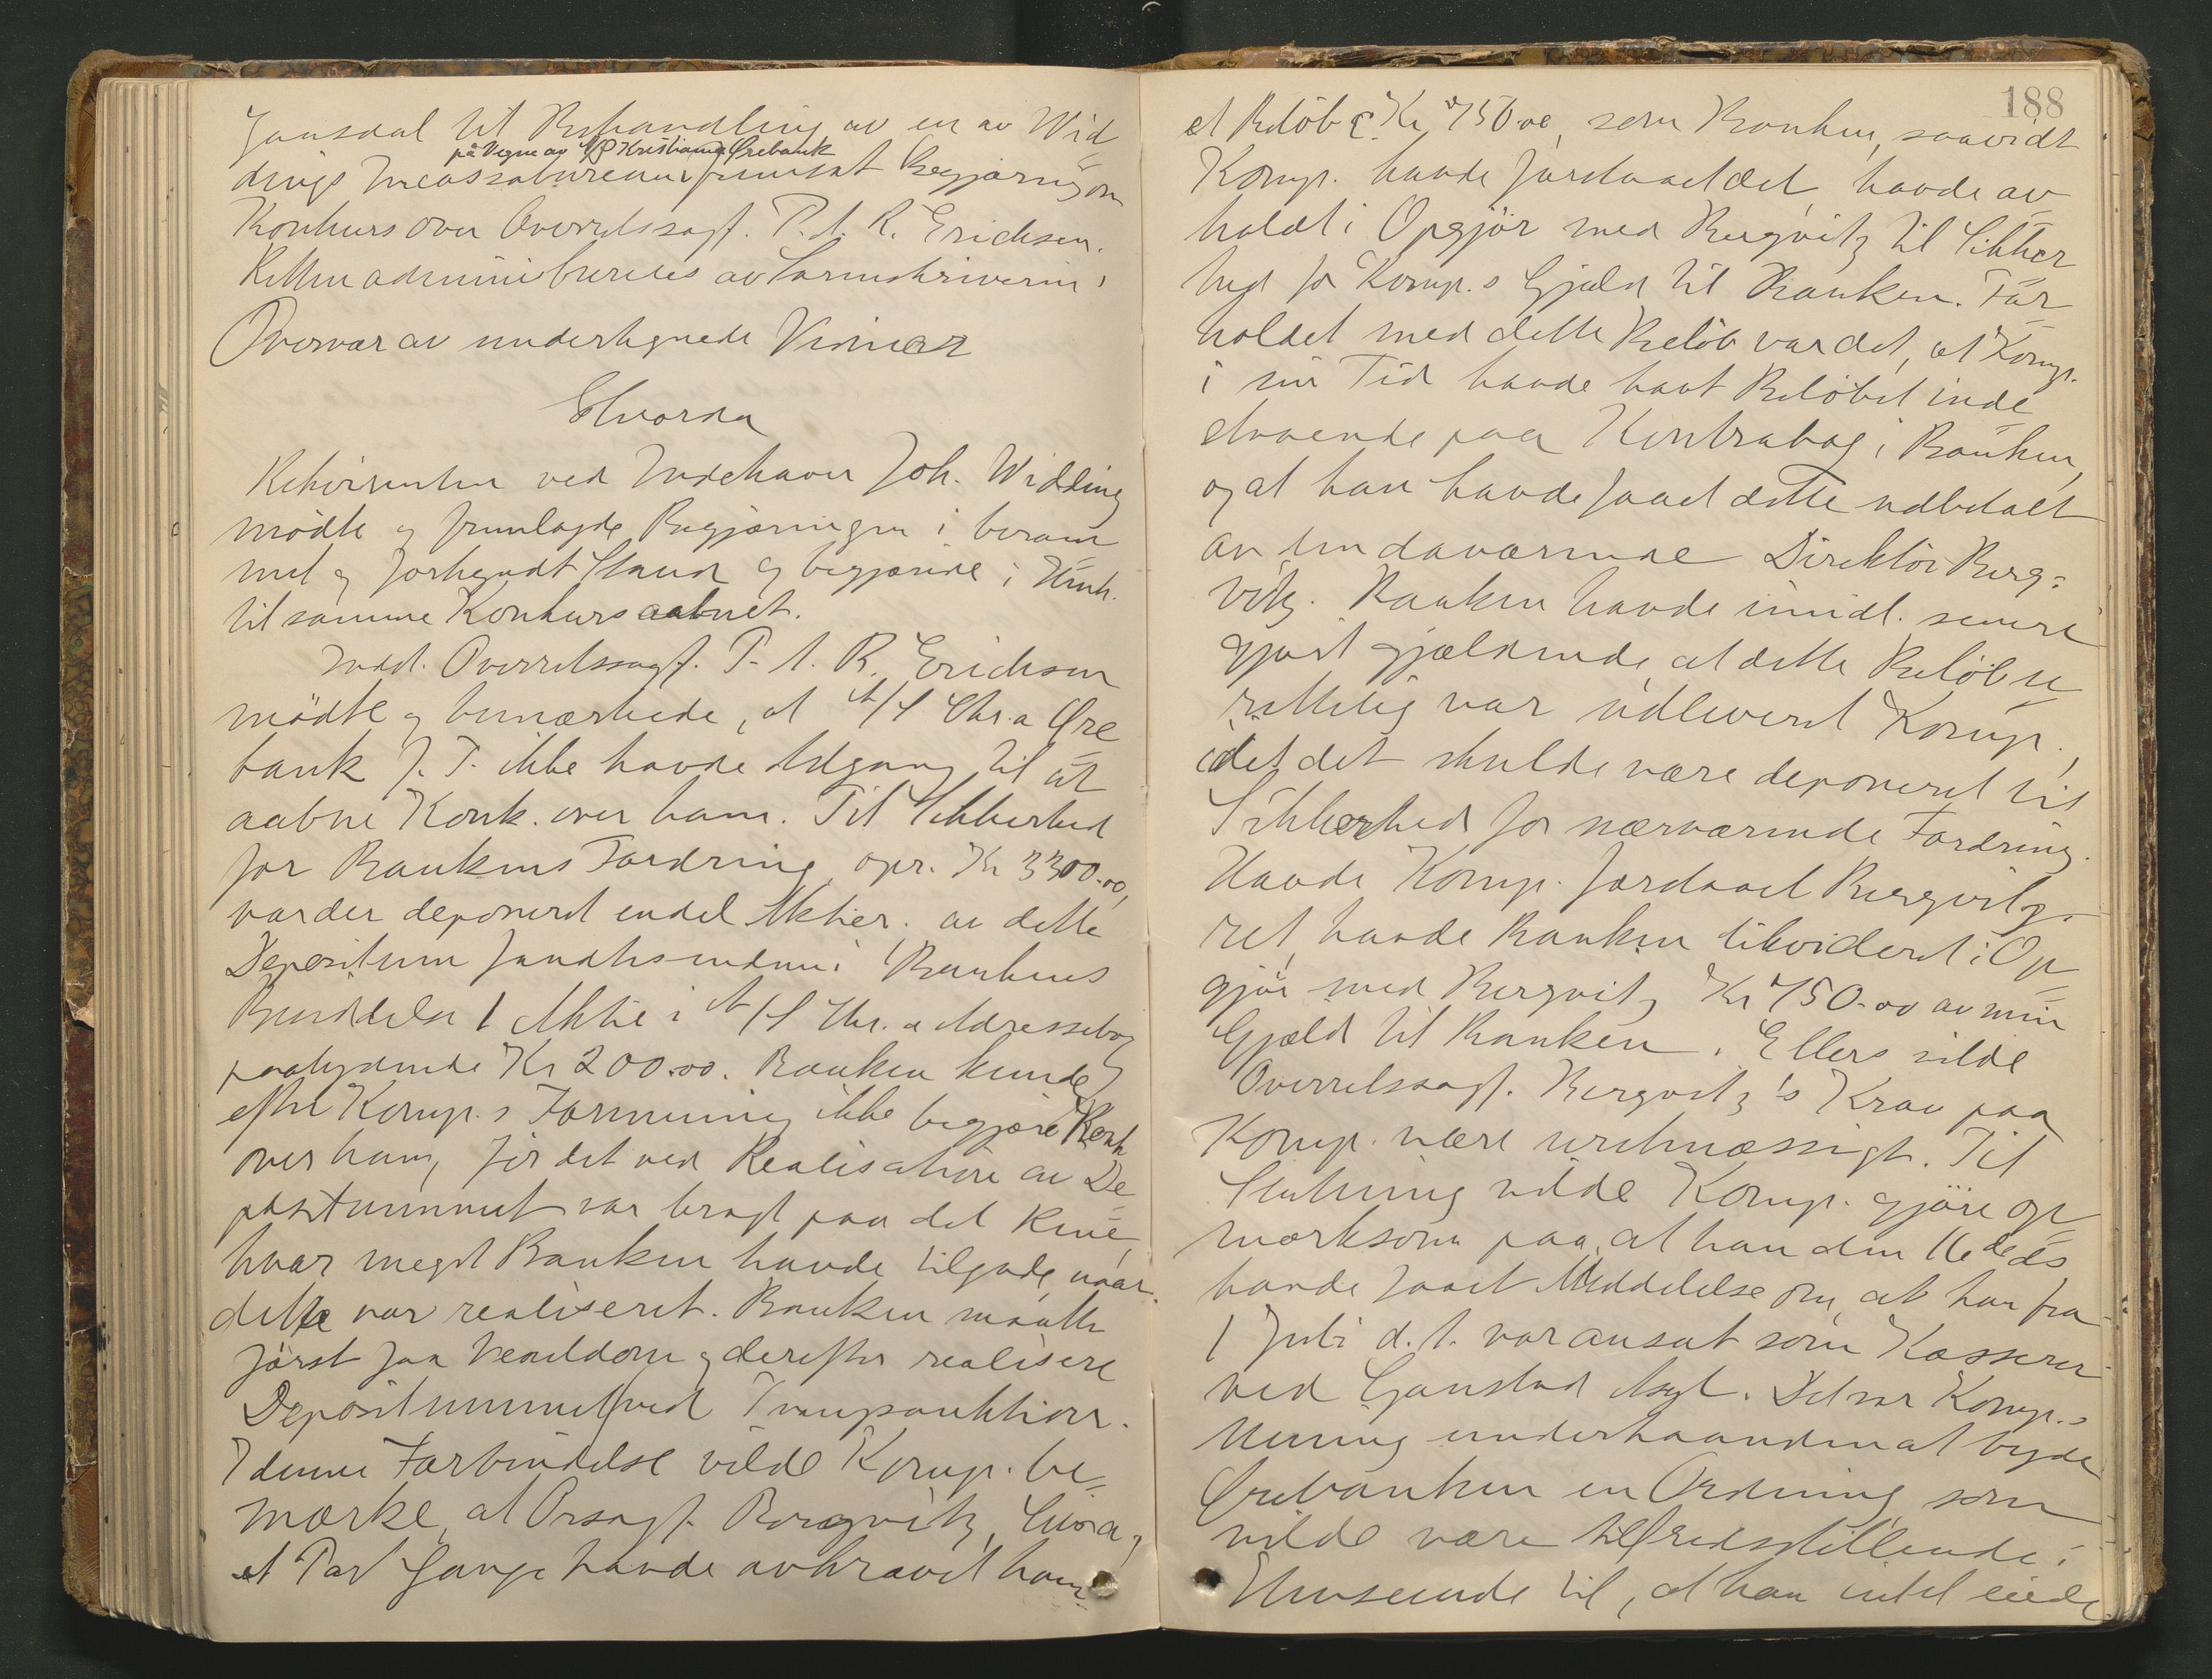 Jonsdal til Behandling av en av Wid
på Vegne av A/S Kristiania Ørebank
dings Incassobureau fremsat Begjæring om
Konkurs over Overretssagf. P. A. R. Erichsen.
Retten administreres av Sorenskriveren i
Overvær av undertegnede Vidner
Hvorda
Rekvirenten ved Indehaver Joh. Widding
mødte og fremlagde Begjæringen i beram
met og forkyndt Stand og begjærede i Henh.
til samme Konkurs aabnet.
Indst. Overretssagf. P. A. R. Erichsen
mødte og bemærkede, at A/S Chr.a Øre
bank f. T. ikke havde Adgang til at
aabne Konk. over ham. Til Sikkerhed
for Bankens Fordring, opr. Kr 3300.00,
var der deponeret endel Aktier. av dette
Depositum fandtes endnu i Bankens
Besiddelse 1 Aktie i A/S Chr.a Adressebog
paalydende Kr 200.00. Banken kunde
efter Komp.s Formening ikke begjære Konk
over ham, før det ved Realisation av De
positummet var bragt paa det Rene,
hvor meget Banken havde tilgode, naar
dette var realiseret. Banken maatte
først faa Domdom og derefter realisere
Depositummet ved Tvangsauktion.
I denne Forbindelse vilde Komp. be
mærke, at Orsagf. Bergwitz, Chr.a,
et Par Gange havde avkrævet ham
188
et Beløb Kr 750.00, som Banken, saavidt
Komp. havde forstaaet det, havde av
holdt i Opgjør med Bergwitz til Sikker
hed for Komp.s Gjæld til Banken. For
holdet med dette Beløb var det, at Komp.
i sin Tid havde havt Beløbet inde
staaende paa Kontrabog i Banken,
og at han havde faaet dette udbetalt
av den daværende Direktør Berg-
witz. Banken havde imidl. senere
gjort gjældende, at dette Beløb u
rettelig var udleveret Komp.,
idet det skulde være deponeret til
Sikkerhed for nærværende Fordring.
Havde Komp. forstaaet Bergwitz
ret, havde Banken likvideret i Op
gjør med Bergwitz Kr 750.00 av min
Gjæld til Banken. Ellers vilde
Overretssagf. Bergwitz's Krav paa
Komp. være uretmæssigt. Til
Slutning vilde Komp. gjøre op
mærksom paa, at han den 11te ds
havde faaet Meddelelse om, at han fra
1 Juli d. A. var ansat som Kasserer
ved Gaustad Asyl. Det var Komp.s
Mening underhaanden at byde
Ørebanken en Ordning, som
vilde være tilfredsstillende i
Henseende til, at han intet eiede